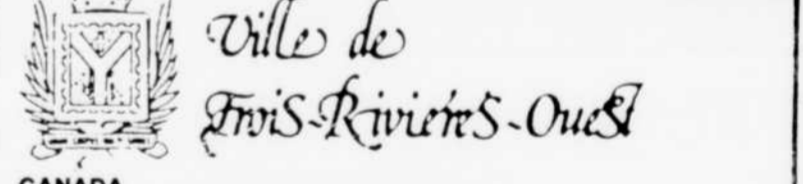 Ville de
Trois-Rivières-Ouest
CANADA